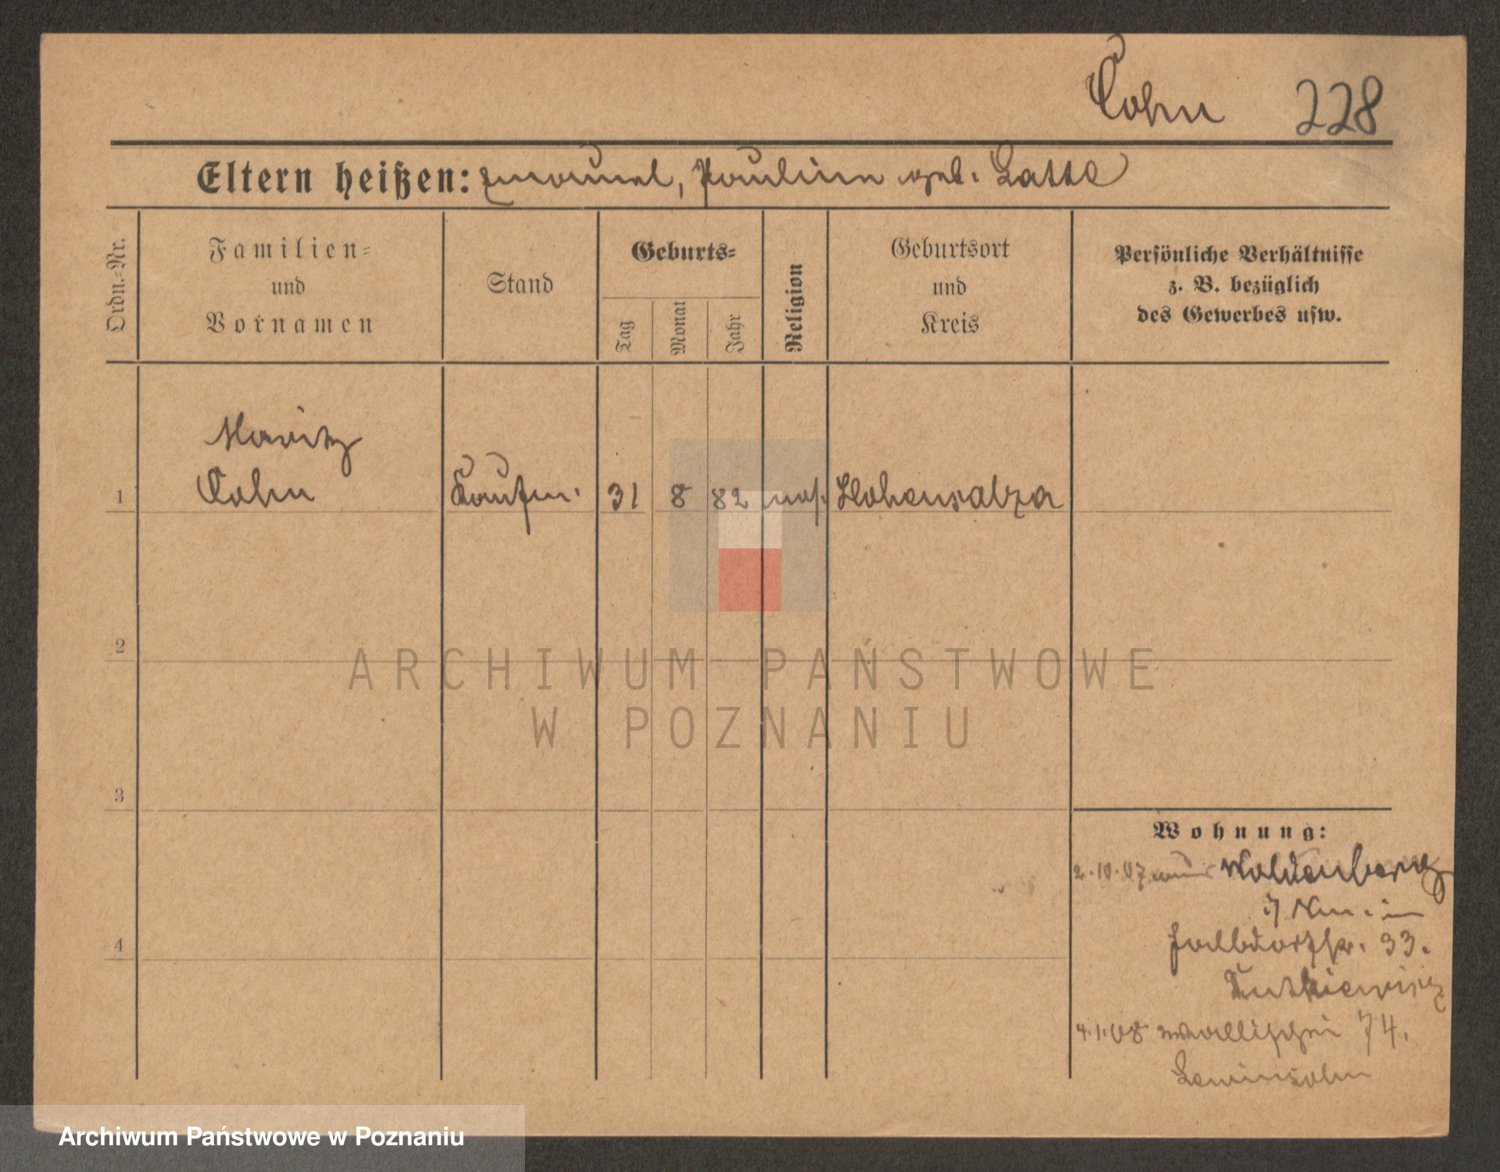 Cohn 228
Eltern heißen: Emanuel, Pauline geb. Latte
Ordn.-Nr.
Familien-
und
Vornamen
Stand
Geburts-
Tag
Monat
Jahr
Religion
Geburtsort
und
Kreis
Persönliche Verhältnisse
z. B. bezüglich
des Gewerbes usw.
Moritz
1 Cohn Kaufm. 31 8 82 mos. Hohensalza
2
ARCHIWUM PAŃSTWOWE
W POZNANIU
3
Wohnung:
2.10.07 aus Woldenberg
33.
4
4.1.08 Wallischei 74.
Lewinsohn
Archiwum Państwowe w Poznaniu